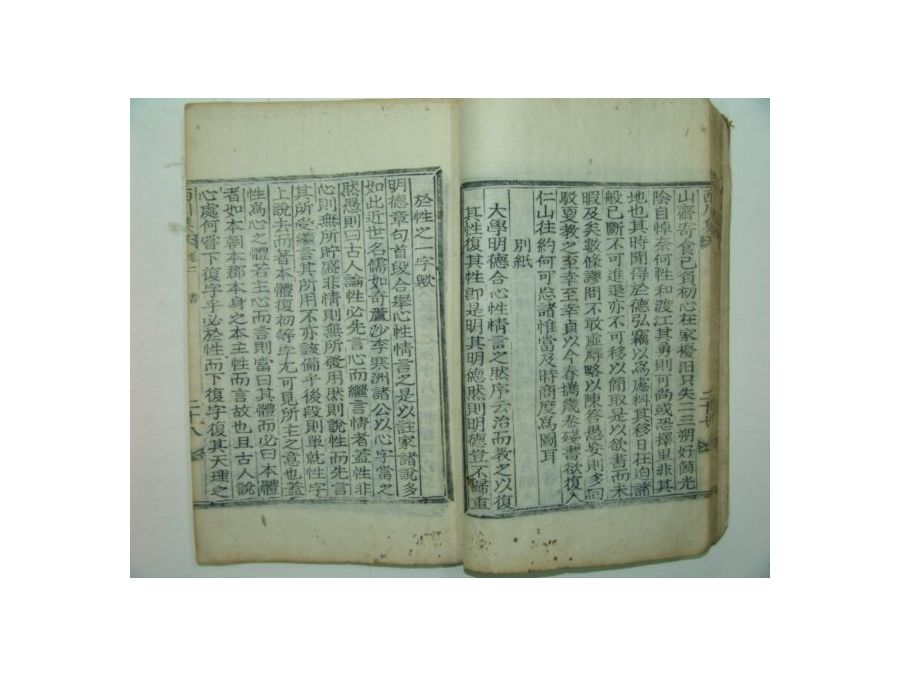 山齋寄食已負初心在家擾汨只失一三朔好箇光
陰自悼奈何性和渡江其勇則可尚或恐擇里非其
地也其時聞得於德弘竊以爲慮料其移日在迫諸
般已斷不可進退亦不可移以簡取是以欲書而未
暇及矣數條謬問不敢虛辱略以陳答愚妄則多回
駁夏教之至幸至幸貞以今春攜幾卷殘書欲復入
仁山在約何可忘諸惟當及時商度爲圖耳
別紙
大學明德合心性情言之然序云治而教之以復
其性復其性卽是明其明德然則明德豈不歸重
二十七
於性之一字歟
明德章句首段合擧心性情言之是以註家諸說多
如此近世名儒如奇蘆沙李寒洲諸公以心字當之
然愚則曰古人論性必先言心而繼言情者蓋性非
心則無所貯盛非情則無所發用然則說性而先言
其所受繼言其所用不亦該備乎後段則單就性字
上說去而著本體復初等字尤可見所主之意也蓋
性爲心之體若主心而言則當曰其體而必曰本體
者如本朝本郡本身之本主性而言故也且古人說
心處何嘗下復字乎必於性而下復字復其天理之
西川集 卷二 書 二十八